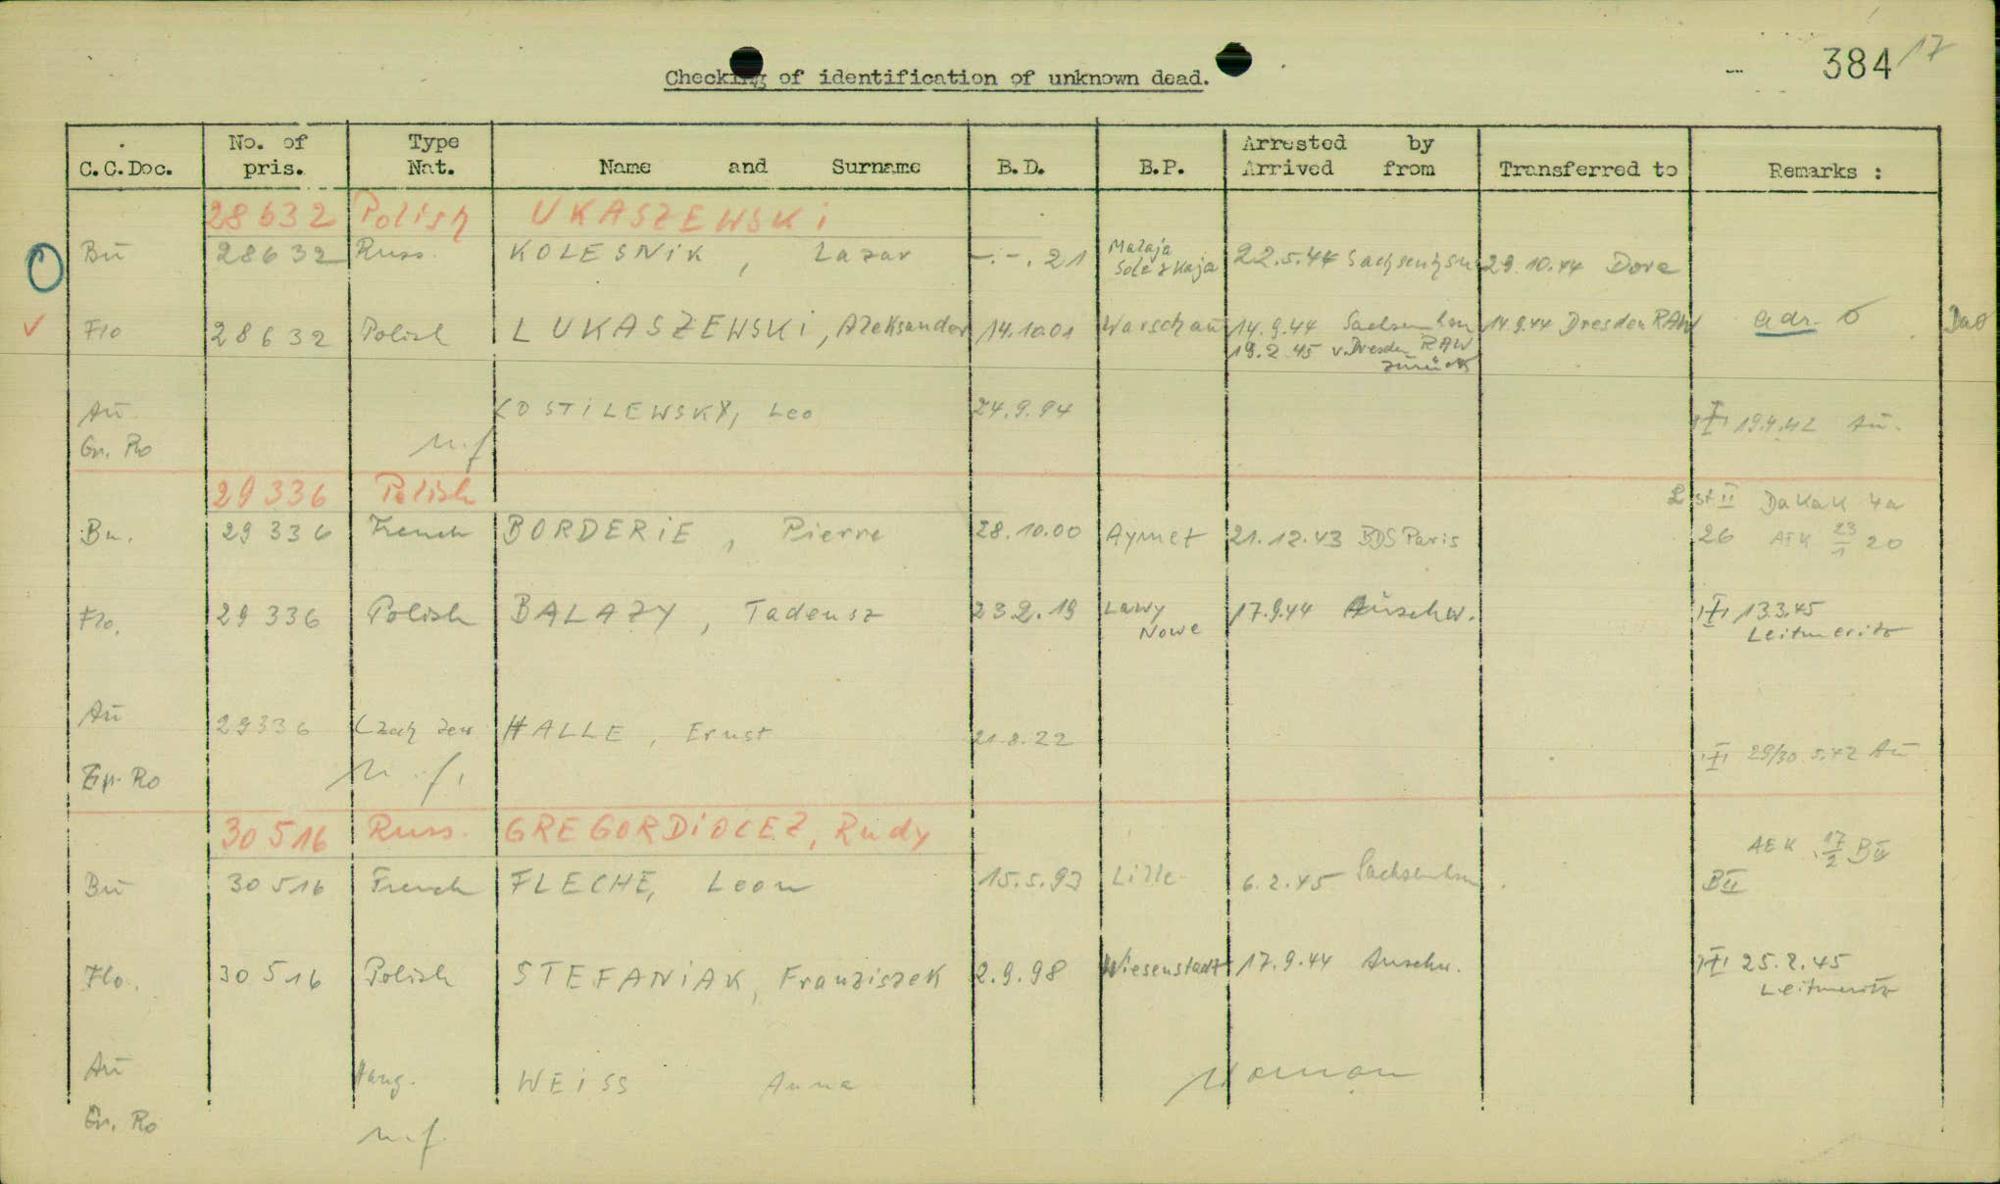 384 17
Checking of identification of unknown dead.
C.C.Doc. No. of pris. Type Nat. Name and Surname B.D. B.P. Arrested by Arrived from Transferred to Remarks :
28632 Polish UKASZEWSKi
Bu 28632 Russ. KOLESNiK, Lazar -.-.21 Malaja 22.5.44 29.10.44 Dora
Flo 28632 Polish LUKASZEWSKi, Aleksander 14.10.01 Warschau 14.9.44 Sachsenhsn 14.9.44 Dresden RAW adr.
19.2.45 v. Dresden RAW
zurück
Au KOSTiLEWSKY, Leo 24.9.94 19.4.42 Au.
Gr. Ro n.f
29336 Polish
List II DaKaK 4a
Bu. 29336 French BORDERiE, Pierre 28.10.00 Aymet 21.12.43 BDS Paris 26 AEK 23/1 20
Flo. 29336 Polish BALAZY, Tadeusz 23.2.19 Lawy Nowe 17.9.44 Auschw. 13.3.45
Leitmeritz
Au 29336 Czech Jew HALLE, Ernst 21.8.22 29/30.5.42 Au
Gr. Ro n.f.
30516 Russ. GREGORDiOCEZ, Rudy
AEK 17/2 Bu
Bu 30516 French FLECHE, Leon 15.5.93 Lille 6.2.45 Sachsenhsn
Flo. 30516 Polish STEFANiAK, Franziszek 2.9.98 Wiesenstadt 17.9.44 Auschw. 25.2.45
Leitmeritz
Au Hung. WEiSS Anna Woman
Gr. Ro n.f.